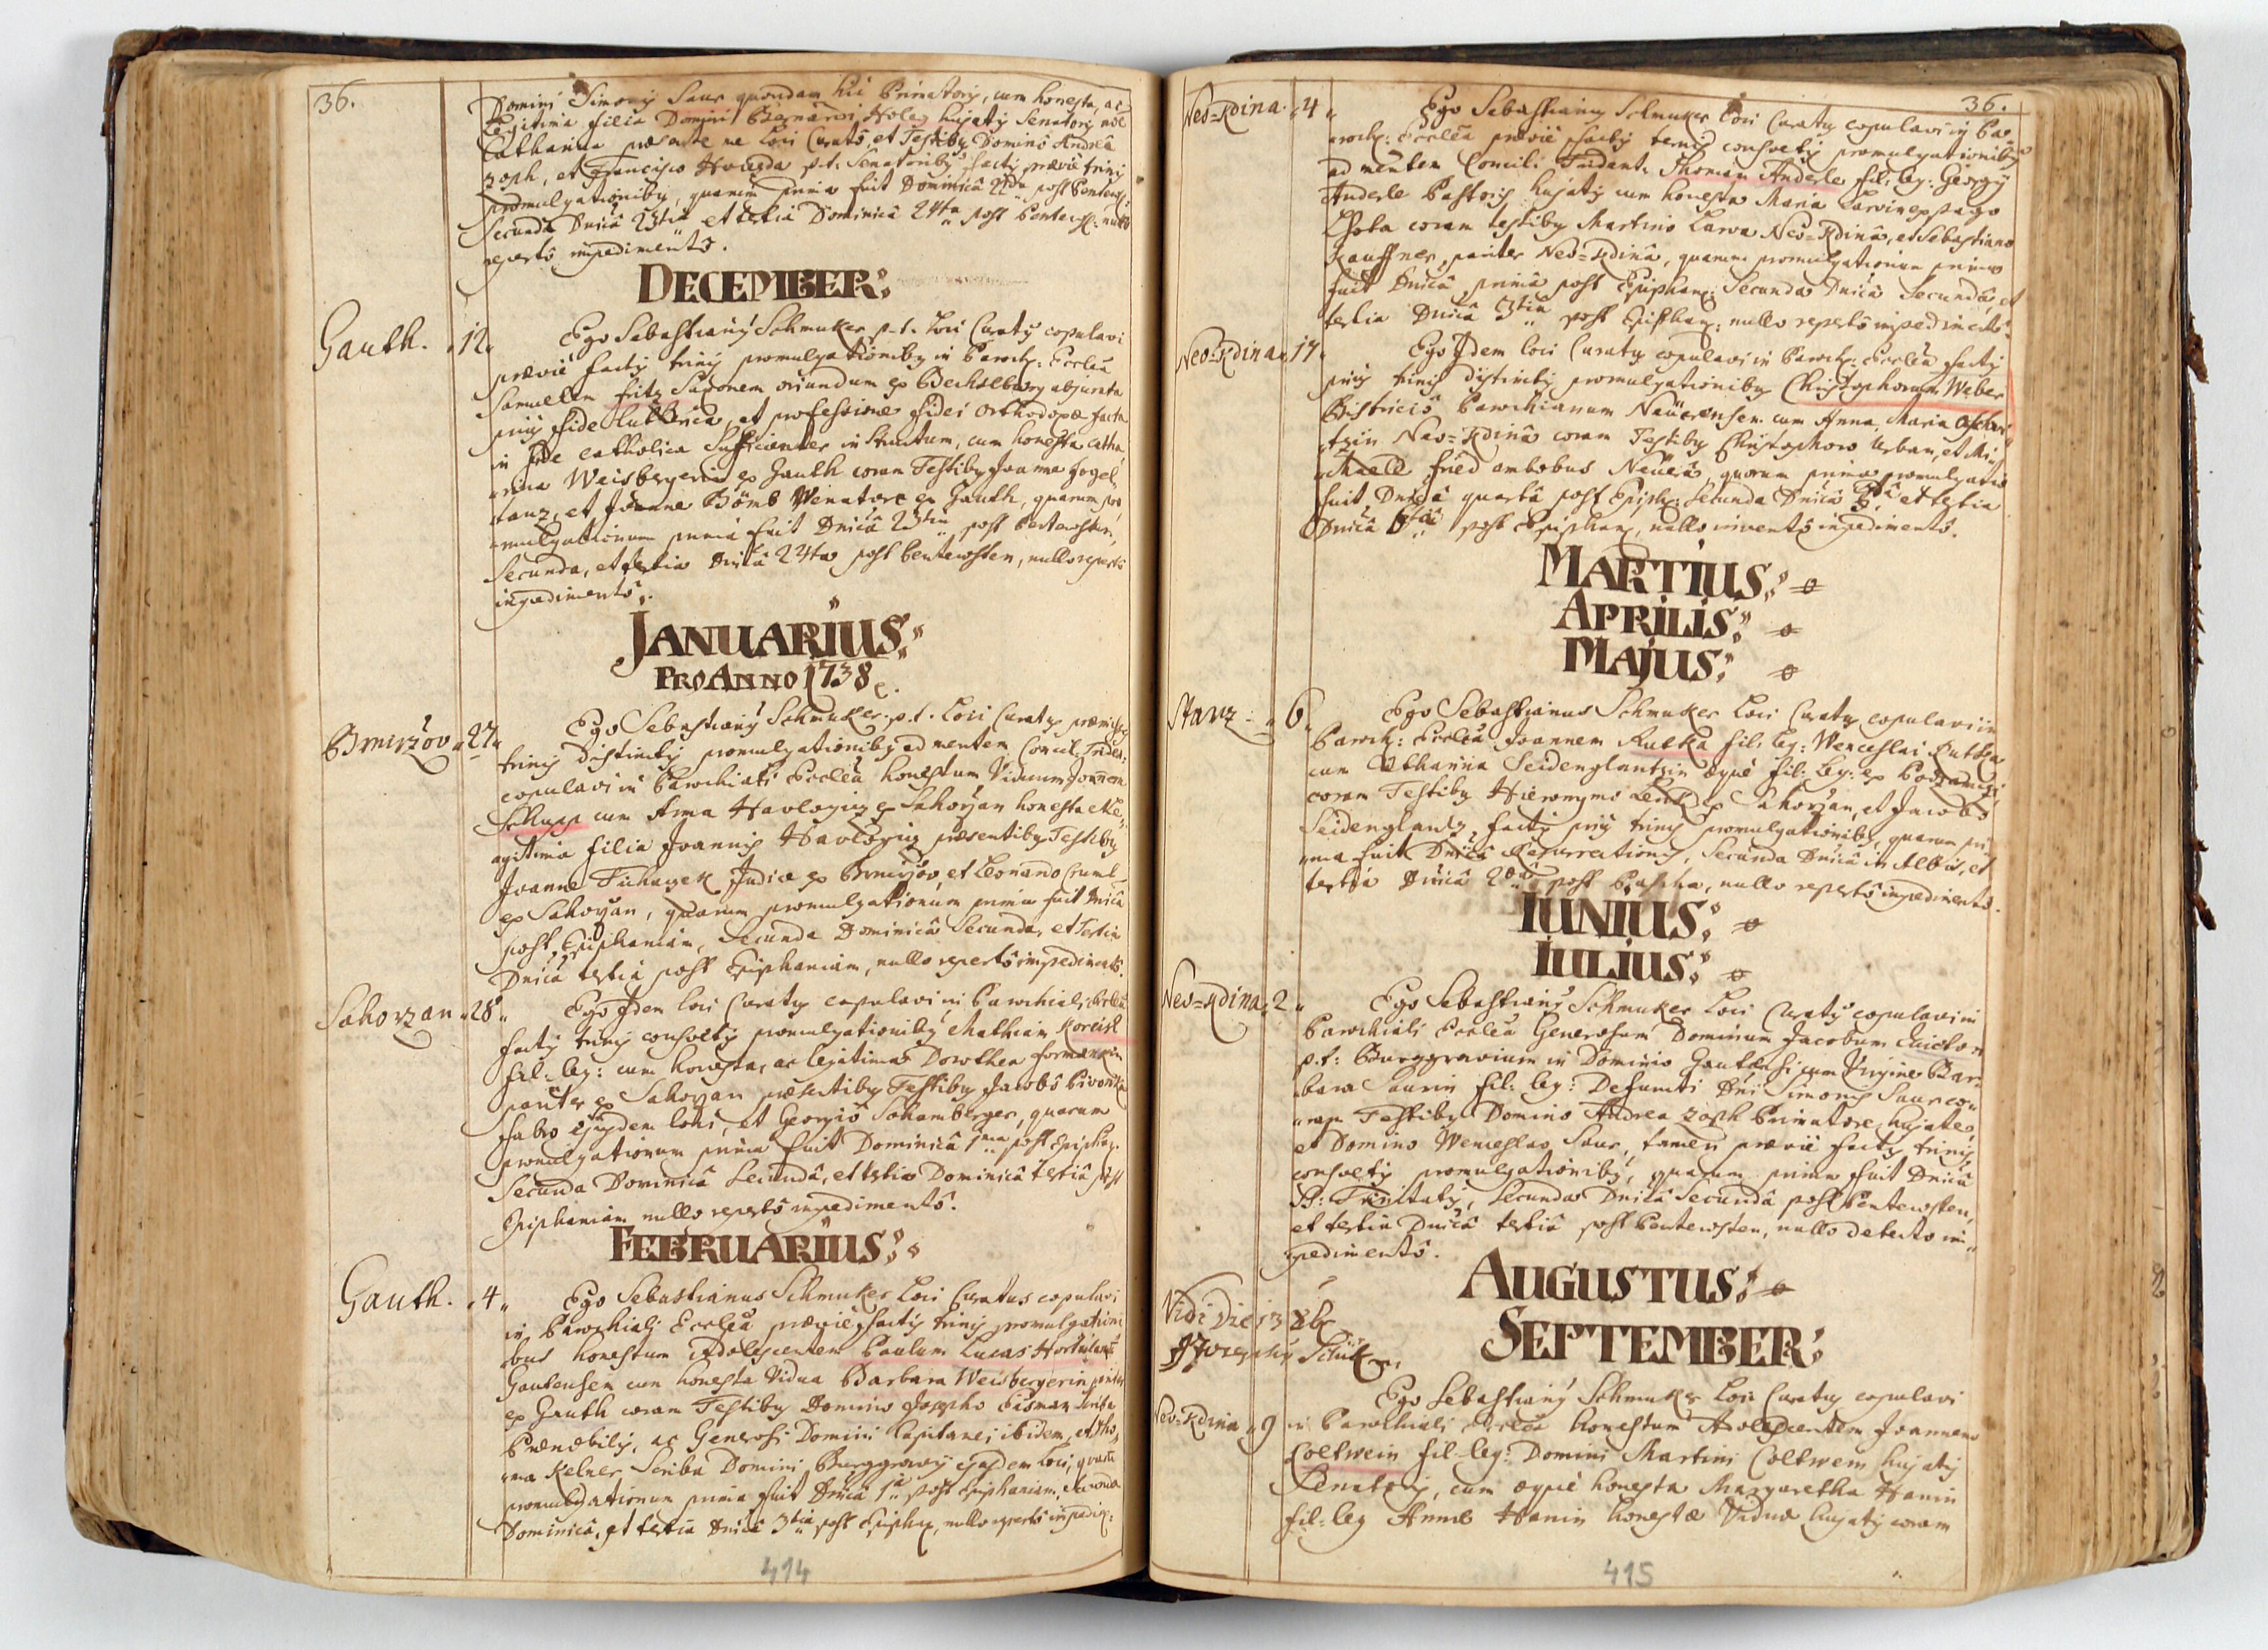 36.
Domini Simonis Saur quondam hic Primatoris, cum honesta, ac
legitima filia Domini Bernardi Holey hujatis Senatoris noe
Catharina præsente me Loci Curatô, et Testibus Dominô Andreâ
Zoph, et Francisco Hvizda p.t. Senatoribus factis prævie trinis
promulgationibus, quarum prima fuit Dominicâ 22da post Pentecos:
Secunda Dnicâ 23tia et tertia Dominicâ 24ta post Pentecos: nullo
repertô impedimentô.
DECEMBER:
Gauth. 12. Ego Sebastianus Schmuker p.t. Loci Curatus copulavi
prævie factis trinis promulgationibus in Paroch: Ecclea
Samuelem Fritz Saxonem oriundum ex Bechselburg abjurata
prius fide Lutherica, et professione fidei Orthodoxæ facta
in fide catholica Sufficienter instructum, cum honesta Catha
rina Weisbergerin ex Gauth coram Testibus Joanne Hogel
tanz, et Joanne Bömb Venatore ex Gauth, quarum pro
mulgationum prima fuit Dnicâ 23tia post Pentecosten,
Secunda, et tertia Dnicâ 24ta post Pentecosten, nullo repertô
impedimentô.
JANUARIUS:
PRO ANNO 1738
Bmirzov 27 Ego Sebastianus Schmuker p.t. Loci Curatus præmissis
trinis Distinctis promulgationibus ad mentem Concil. Triden:
copulavi in Parochiali Ecclea honestum Viduum Joannem
Schupp cum Anna Havlogin ex Sahorzan honesta et Le
gitima filia Joannis Havlogin præsentibus Testibus
Joanne Tichazek Judice ex Bmirzov, et Leonardo Cruml
ex Sahorzan, quarum promulgationum prima fuit Dnicâ
post Epiphaniam, Secunda Dominicâ Secunda, et Tertia
Dnicâ tertia post Epiphaniam, nullo repertô impedimentô.
Sahorzan 28 Ego Idem Loci Curatus copulavi in Parochiali Ecclea
factis trinis consvetis promulgationibus Mathiam Koreisl
fil: leg: cum honesta, ac legitima Dorothea formannin
pariter ex Sahorzan præsentibus Testibus Jacobô Pivonka
fabro ejusdem loci, et Georgiô Schamberger, quarum
promulgationum prima fuit Dominicâ 1ma post Epiphan:
Secunda Dominicâ Secundâ, et tertia Dominicâ tertiâ post
Epiphaniam nullo repertô impedimentô.
FEBRUARIUS:
Gauth. 4 Ego Sebastianus Schmuker Loci Curatus copulavi
in Parochiali Ecclea prævie factis trinis promulgationi
bus honestum Adolescentem Paulum Lucas Hortulanũ
Gautensem cum honesta Vidua Barbara Weisbergerin pariter
ex Gauth coram Testibus Domino Josepho Cisman Scriba
Prænobilis, ac Generosi Domini Capitanei ibidem, et Tho
ma Kelner Scriba Domini Burggravii ejusdem Loci, quarũ
promulgationum prima fuit Dnicâ 1a post Epiphaniam, Secunda
Dominicâ, et tertia Dnicâ 3tia post Epiphan, nullo repertô impedim:
414
36.
Neo-Kdina 4 Ego Sebastianus Schmuker Loci Curatus copulavi in Pa
roch: Ecclea prævie factis ternis consvetis promulgationibus
ad mentem Concili Trident: Thomam Anderle fil: leg: Georgii
Anderle Pastoris hujatis cum honesta Maria Carvin ex pago
Lhota coram testibus Martino Karva Neo-Kdinâ, et Sebastiano
Kauffner, pariter Neo-Kdinâ, quarum promulgationum prima
fuit Dnicâ primâ post Epiphan: Secunda Dnicâ Secundâ, et
tertia Dnicâ 3tia post Epiphan: nullo repertô impedimentô.
Neo-Kdina 17 Ego Idem Loci Curatus copulavi in Paroch: Ecclea factis
prius trinis distinctis promulgationibus Christophorum Weber
Bistriciô Parochianum Neüernsem cum Anna Maria
tzin Neo-Kdinâ coram Testibus Christophoro Urban, et Mi
chaele Fried ambobus Neüern, quarum prima promulgatio
fuit Dnicâ quartâ post Epiph: Secunda Dnicâ 5tâ et tertia
Dnicâ 6tâ post Epiphan, nullo inventô impedimentô.
MARTIUS:
APRILIS:
MAJUS:
Stanz 6 Ego Sebastianus Schmuker Loci Curatus copulavi in
Paroch: Ecclea Joannem Rutka fil: leg: Wenceslai Rutka
cum Catharina Seidenglantzin æque fil: leg: ex Podzamczi
coram Testibus Hieronymo Lenk ex Sahorzan, et Jacobo
Seidenglantz factis prius trinis promulgationibus, quarum pri
ma fuit Dnicâ Resurrectionis, Secunda Dnicâ in Albis, et
tertia Dnicâ 2da post Pascha, nullo repertô impedimentô.
IUNIUS:
IULIUS:
Neo-Kdina 2 Ego Sebastianus Schmuker Loci Curatus copulavi in
Parochiali Ecclea Generosum Dominum Jacobum
p.t: Burggravium in Dominio Gautensi cum Virgine Bar
bara Saurin fil: leg: Defuncti Dni Simonis Saur co
ram Testibus Domino Andrea Zoph Primatore hujate,
et Domino Wenceslao Saur, tamen prævie factis trinis
consvetis promulgationibus, quarum prima fuit Dnicâ
SS: Trinitatis, Secunda Dnicâ Secundâ post Pentecosten,
et tertia Dnicâ tertiâ post Pentecosten, nullo detecto im
pedimentô.
AUGUSTUS:
Vidi Die 13 Xbr
SEPTEMBER:
Neo-Kdina 9 Ego Sebastianus Schmuker Loci Curatus copulavi
in Parochiali Ecclea honestum Adolescentem Joannem
Coltwein fil: leg: Domini Martini Coltwein hujatis
Senatoris, cum æque honesta Margaretha Hanin
fil: leg Annæ Hanin honestæ Viduæ hujatis coram
415